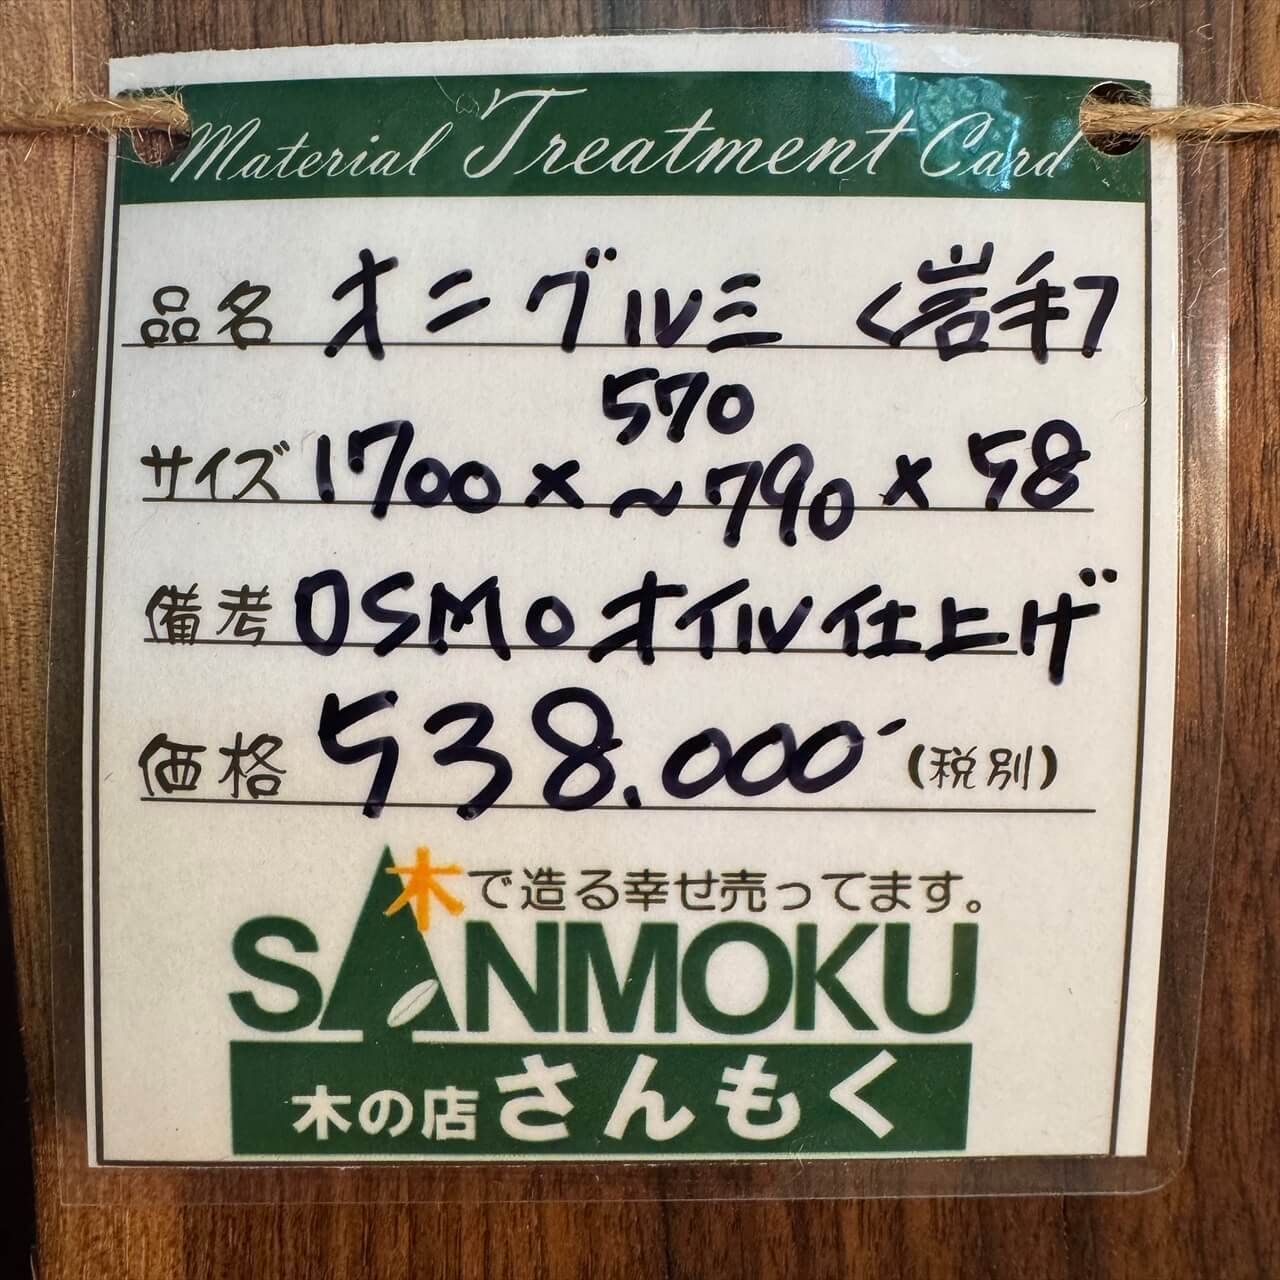 Material Treatment Card
品名 オニグルミ <岩手>
570
サイズ 1700 × ～790 × 58
備考 OSMOオイル仕上げ
価格 538.000- (税別)
木で造る幸せ売ってます。
SANMOKU
木の店 さんもく